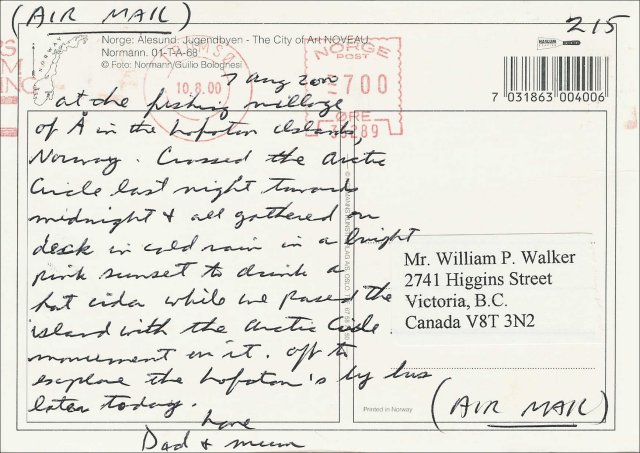 (AIR MAIL)
215
Norge: Ålesund. Jugendbyen - The City of Art NOVEAU.
Normann. 01-T-A-68
© Foto: Normann/Guilio Bolognesi
NORWAY
10.8.00
NORGE
POST
700
ØRE
7 031863 004006
7 Aug 2000
at the fishing village
of Å in the Lofoton Islands,
Norway. Crossed the Arctic
Circle last night towards
midnight & all gathered on
deck in cold rain in a bright
pink sunset to drink a
hot cider while we passed the
island with the Arctic Circle
monument on it. Off to
explore the Lofoton's by bus
later today.
Love
Dad & mum
Mr. William P. Walker
2741 Higgins Street
Victoria, B.C.
Canada V8T 3N2
Printed in Norway
(AIR MAIL)